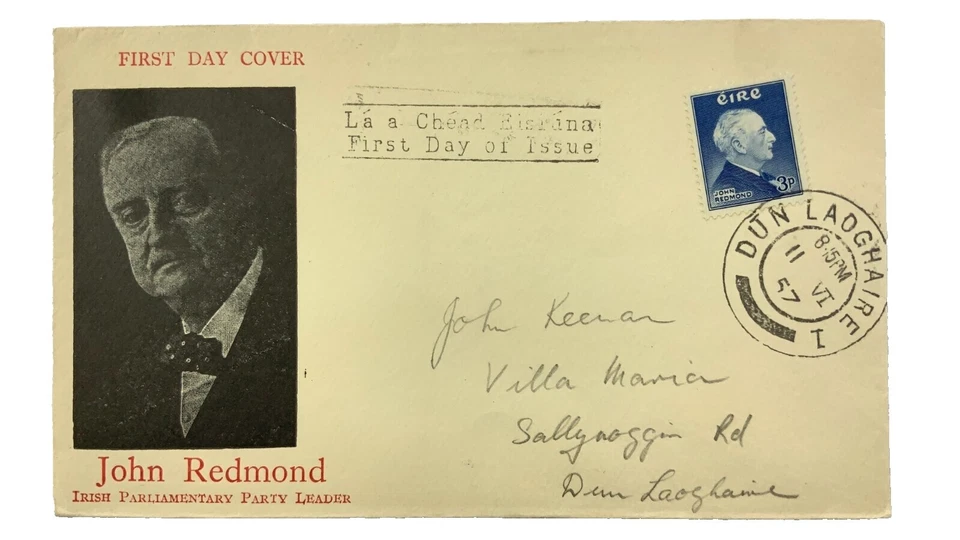 FIRST DAY COVER
Lá a Chéad Eisiúna
First Day of Issue
éIRE
JOHN
REDMOND
3p
DÚN LAOGHAIRE 1
8.15PM
11 VI
57
John Keenan
Villa Maria
Sallynoggin Rd
Dun Laoghaire
John Redmond
IRISH PARLIAMENTARY PARTY LEADER